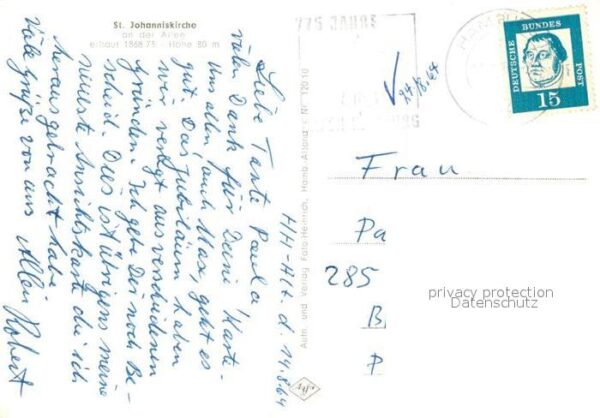 St. Johanniskirche
an der Allee
erbaut 1868-75 - Höhe 80 m
HH-Alt. d. 14.8.64
Liebe Tante Paula!
Vielen Dank für Deine Karte.
Uns allen, auch Max, geht es
gut. Das Jubiläum haben
wir vertagt aus verschiedenen
Gründen. Ich gebe Dir noch Be-
scheid. Dies ist übrigens meine
neueste Ansichtskarte die ich
herausgebracht habe.
Viele Grüße von uns Allen
Robert
Aufn. und Verlag Foto-Heinrich, Hamb.-Altona · Nr. 120
775 JAHRE
HAMBURG
14/8.64
DEUTSCHE BUNDESPOST
15
Frau
Pa
285
B
P
privacy protection
Datenschutz
Agfa